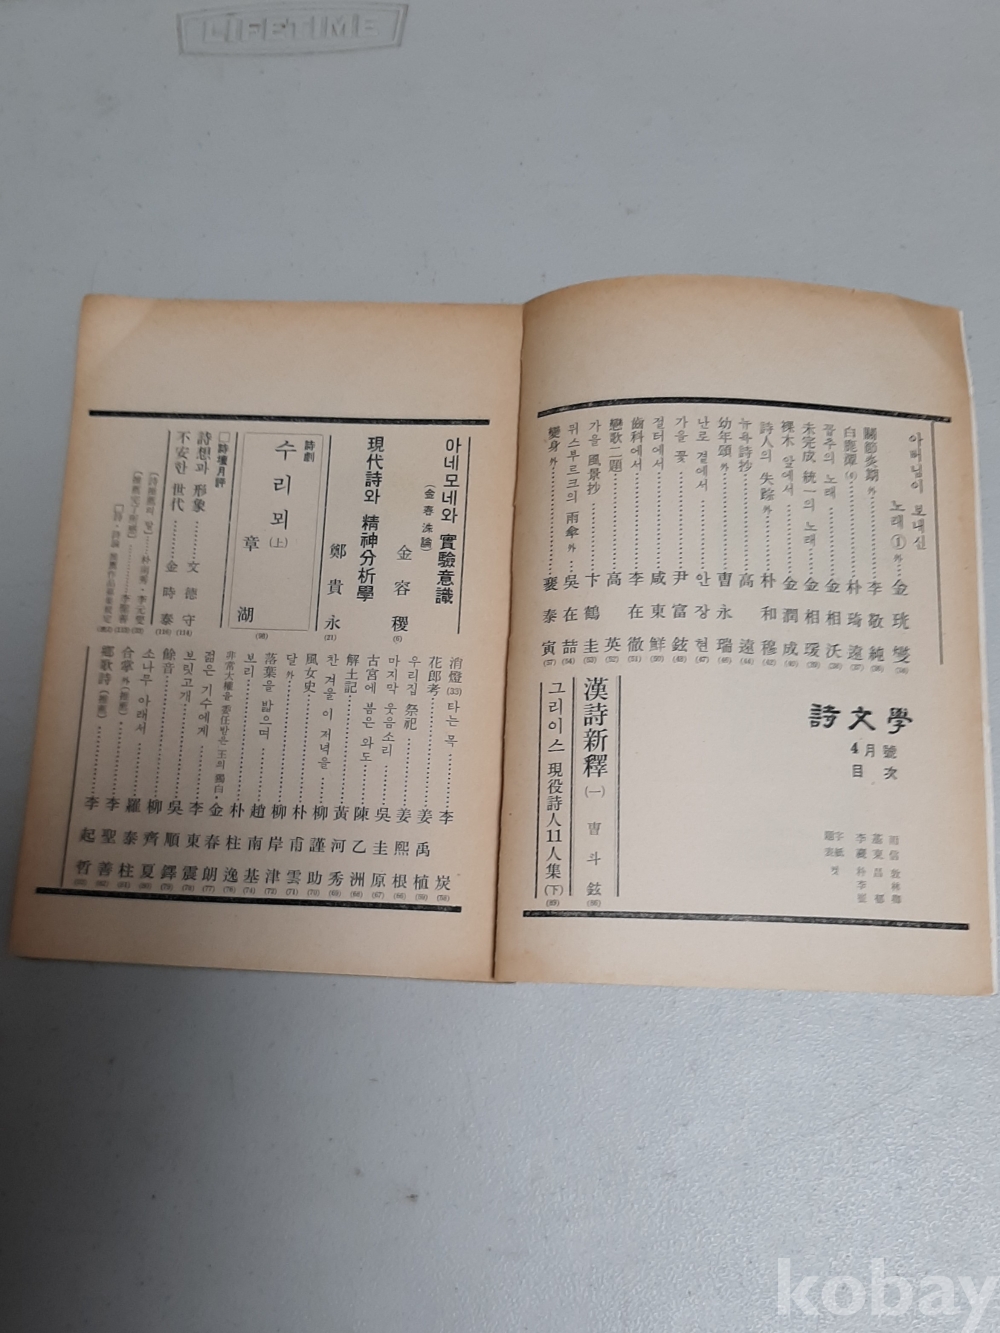 LIFETIME
詩文學
4月號
目次
아버님이 보내신
노래①外 金珖燮(34)
關節炎期外 李敬純(36)
白鹿潭(4) 朴琦遠(37)
꼽추의 노래 金相沃(38)
未完成 統一의 노래 金相瑗
裸木 앞에서 金潤成
詩人의 失踪外 朴和穆(42)
뉴욕詩抄 高遠(44)
幼年頌外 曺永瑞(46)
난로 곁에서 안장현(47)
가을 꽃 尹富鉉(49)
절터에서 咸東鮮(50)
齒科에서 李在徹(51)
戀歌二題 高英(52)
가을 風景抄 卞鶴圭(53)
뀌스부르크의 雨傘外 吳在喆(54)
變身外 裵泰寅(57)
漢詩新釋(一) 曺斗鉉(86)
그리이스 現役詩人11人集(下)(89)
아네모네와 實驗意識
(金春洙論)
金容稷(6)
現代詩와 精神分析學
鄭貴永(21)
詩劇
수리뫼(上)
章湖(98)
□詩壇月評
詩想과 形象 文德守(114)
不安한 世代 金時泰(116)
消燈(33)타는 목 李炭(58)
花郎考 姜禹植(59)
우리집 祭祀 姜熙根(66)
마지막 웃음소리 吳圭原(67)
古宮에 봄은 와도 陳乙洲(68)
解土記 黃河秀(69)
찬 겨울 이 저녁을 柳謹助(70)
風女史 朴甫雲(71)
달外 柳岸津(73)
落葉을 밟으며 趙南基(74)
보리 朴柱逸(76)
非常大權을 委任받은 王의 獨白 金春朗(77)
젊은 기수에게 李東震(78)
보릿고개 吳順鐸(79)
餘音 柳齊夏(80)
소나무 아래서 羅泰柱
合掌外(推薦) 李聖善
鄕歌詩(推薦) 李起哲
kobay